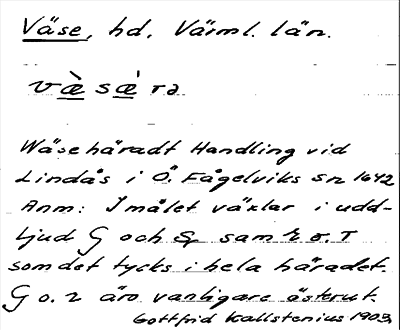 Väse, hd, Värml. län.
væ̀ sæ̀ rə
Wäsehäradt Handling vid
Lindås i Ö. Fågelviks sn 1642
Anm: I målet växlar i udd-
ljud G och samt o. T
som det tycks i hela häradet.
G o. 2 äro vanligare österut.
Gottfrid Kallstenius 1903